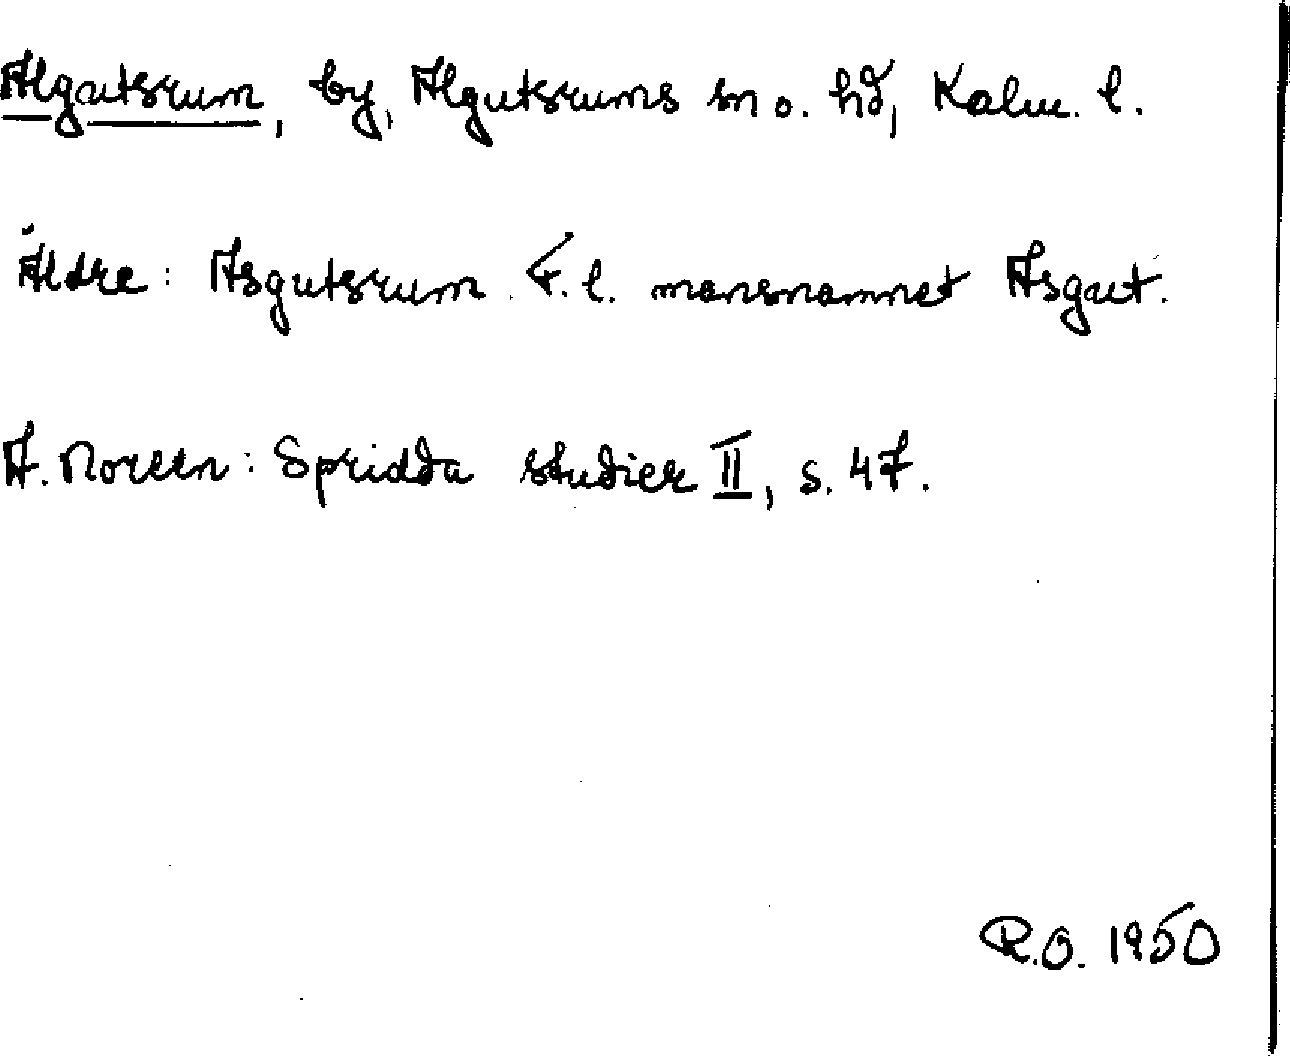 Algutsrum, by, Algutsrums sn o. hd, Kalm. l.
Äldre: Asgutsrum. F. l. mansnamnet Asgut.
A. Noreen: Spridda studier II, s. 47.
R.O. 1950